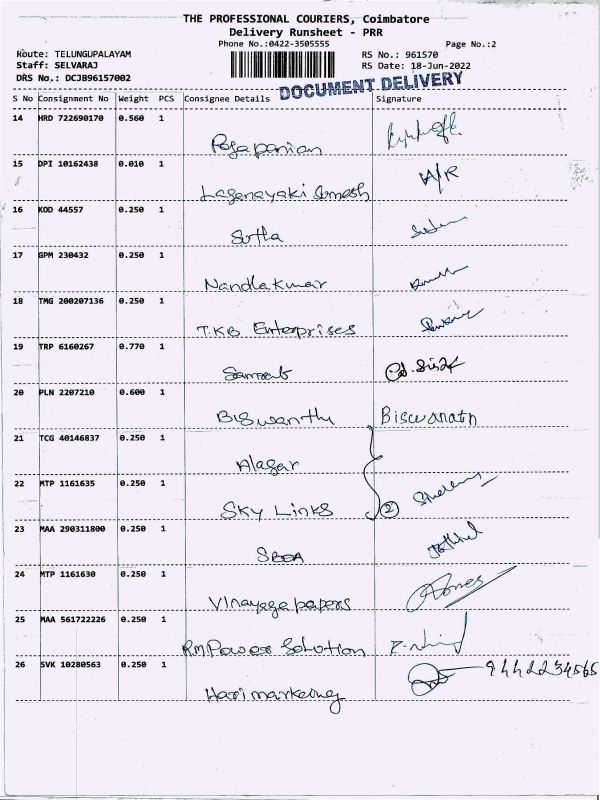 THE PROFESSIONAL COURIERS, Coimbatore
Delivery Runsheet - PRR
Phone No.:0422-3505555 Page No.:2
Route: TELUNGUPALAYAM RS No.: 961570
Staff: SELVARAJ RS Date: 18-Jun-2022
DRS No.: DCJB96157002
DOCUMENT DELIVERY
S No Consignment No Weight PCS Consignee Details Signature
14 HRD 722690170 0.560 1
15 DPI 10162438 0.010 1
A/R
16 KOD 44557 0.250 1
17 GPM 230432 0.250 1
Nandhakumar
18 TMG 200207136 0.250 1
T.KB Enterprises
19 TRP 6160267 0.770 1
20 PLN 2207210 0.600 1
Biswanth Biswanath
21 TCG 40146837 0.250 1
Alagar
22 MTP 1161635 0.250 1
Sky Links 2
23 MAA 290311800 0.250 1
24 MTP 1161630 0.250 1
Vinayaga papers
25 MAA 561722226 0.250 1
RM Power Solution
26 SVK 10280563 0.250 1
9442234565
Hari